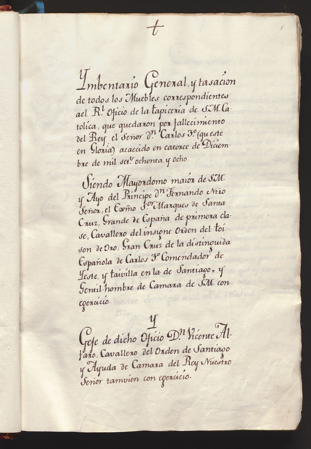 Ymbentario General, y tasacion
de todos los Muebles correspondientes
ael R.l Oficio de la tapiceria de S.M. Ca
tolica, que quedaron por fallecimiento
del Rey el Señor d.n Carlos 3.o (que este
en Gloria) acaecido en catorce de Diciem
bre de mil set.s ochenta, y ocho
Siendo Mayordomo maior de S.M.
y Ayo del Principe d.n Fernando Nrô
Señor, el Exmô S.or Marques de Santa
Cruz, Grande de España de primera cla
se, Cavallero del insigne Orden del toi
son de Oro, Gran Cruz de la distinguida
Española de Carlos 3.o Comendador de
Yeste, y taivilla en la de Santiago, y
Gentil hombre de Camara de S.M. con
egercicio.
Y
Gefe de dicho Oficio D.n Vicente Al
faro, Cavallero del Orden de Santiago
y Ayuda de Camara del Rey Nuestro
Señor tambien con egercicio.